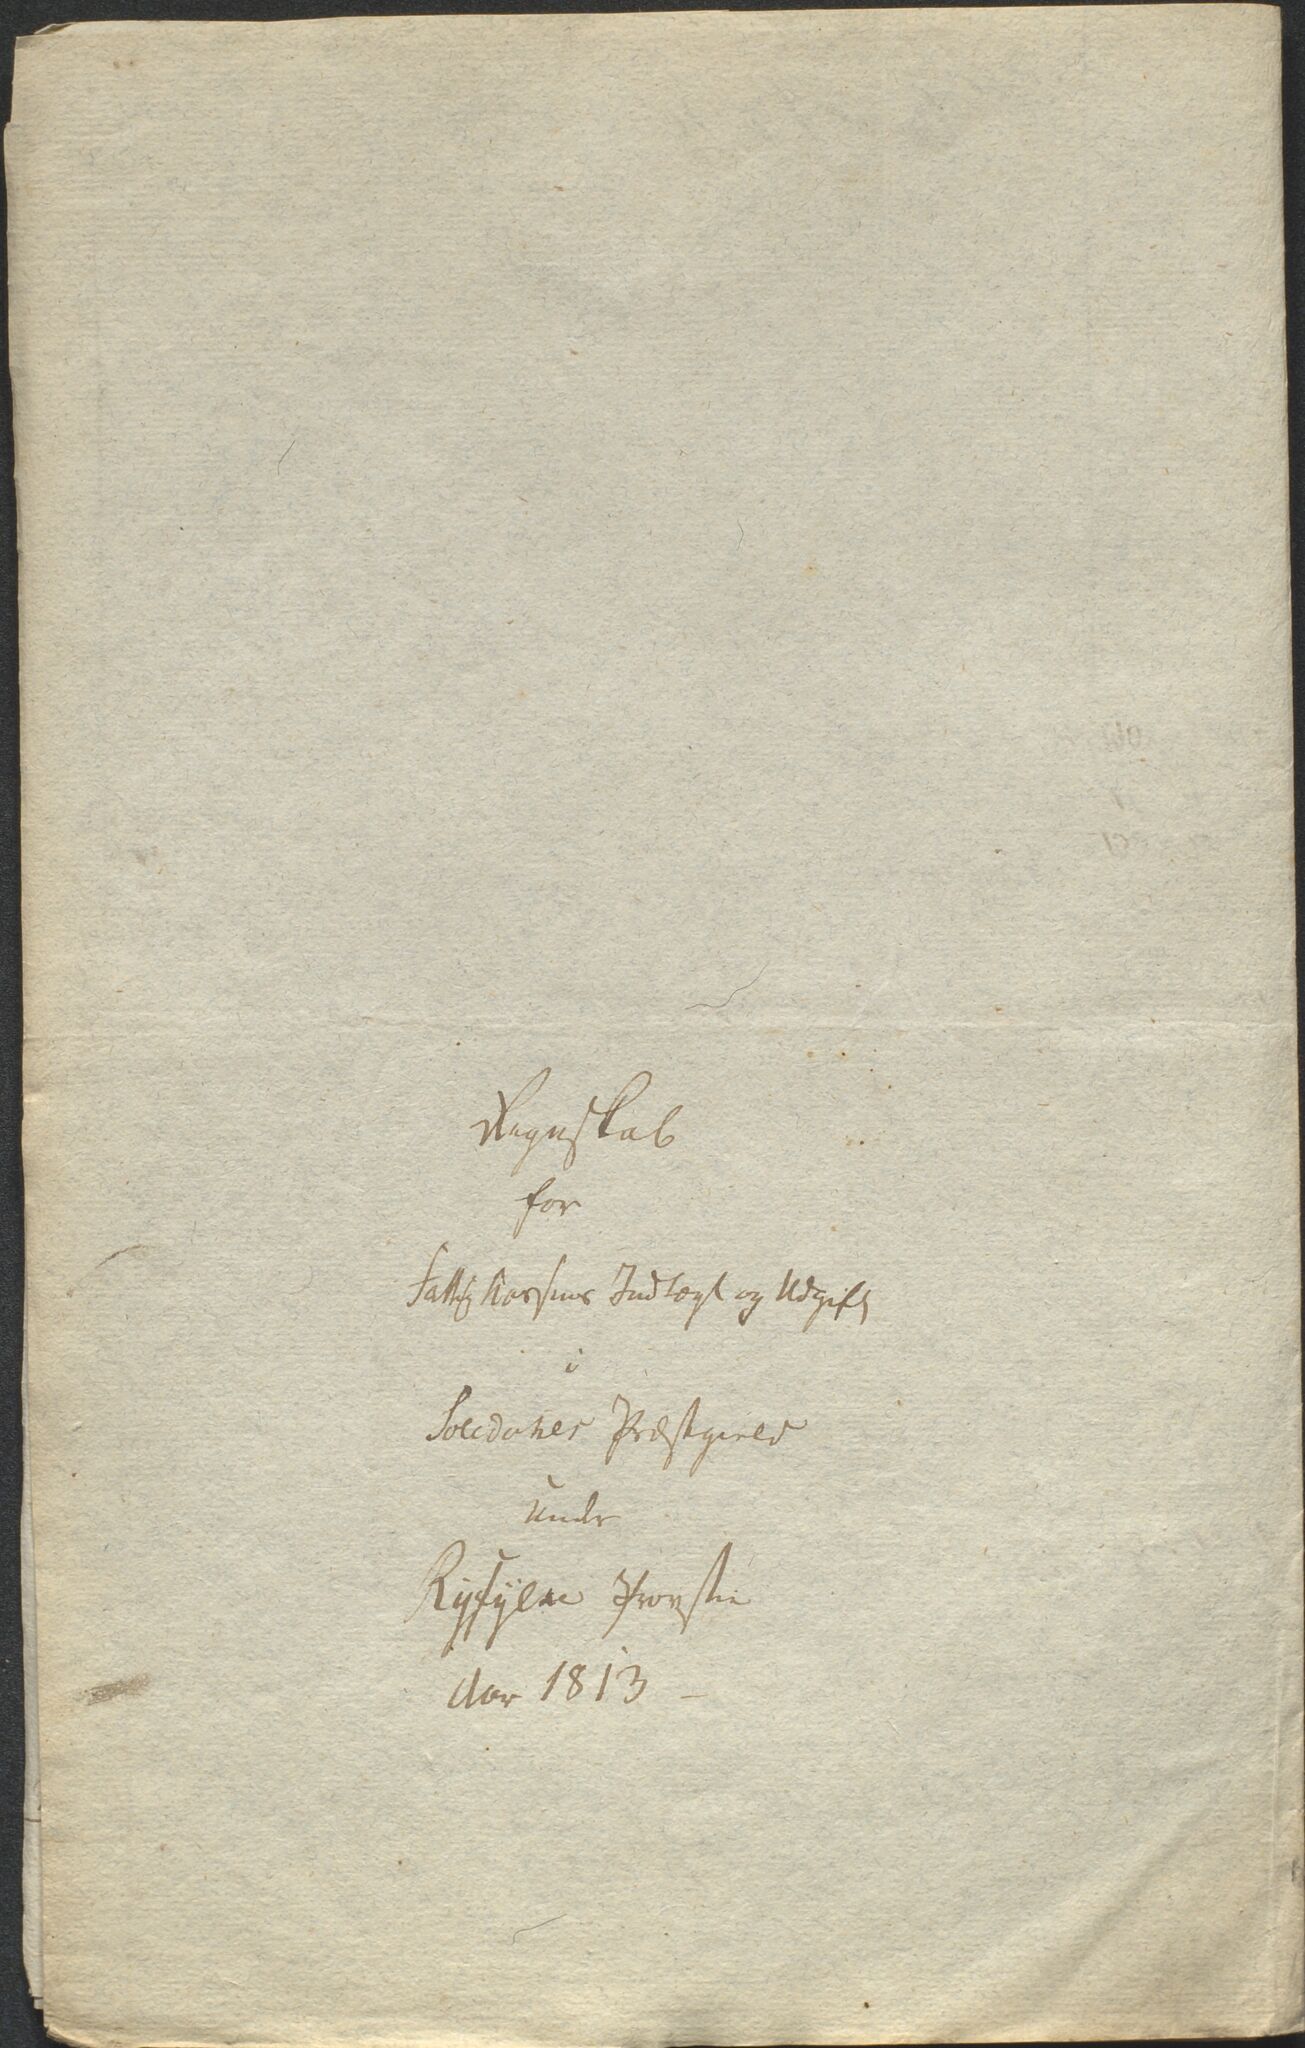 Regnskab
for
Fattig Kassens Indtægt og Udgift
i
Soledahls Præstgield
under
Ryefylke Provstie
Aar 1813 –